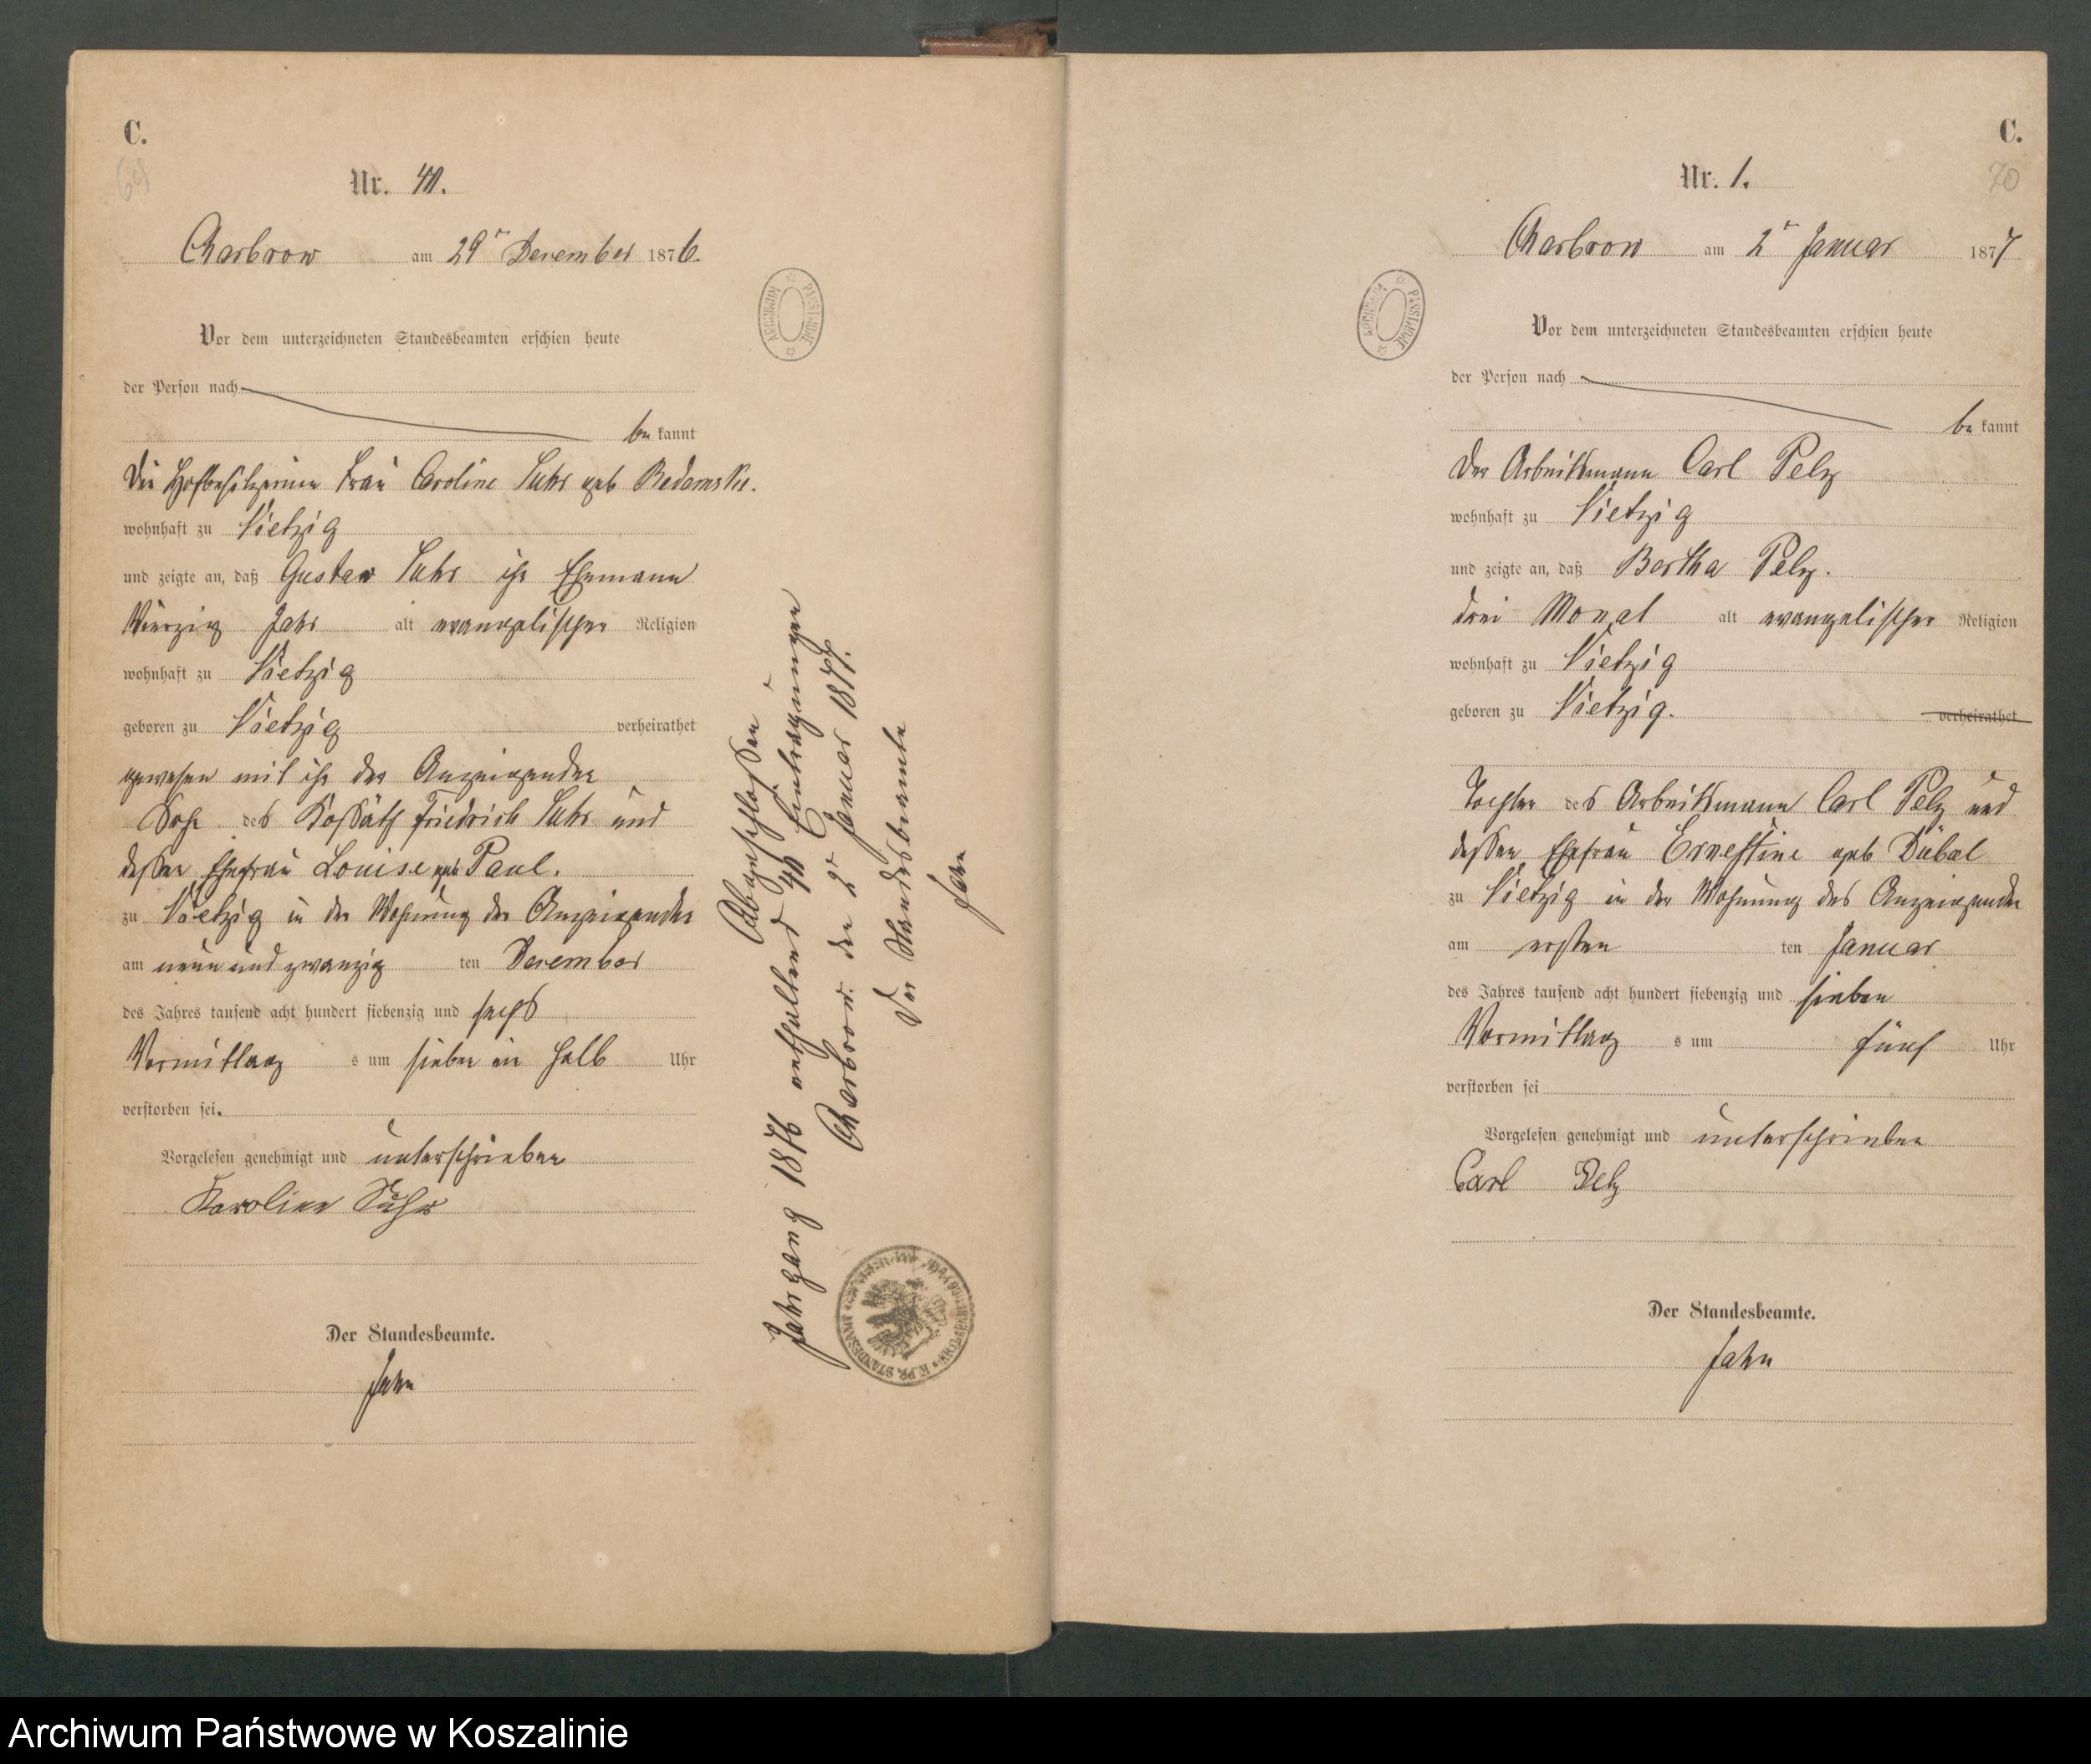 C.
69
Nr. 40.
Charbrow am 29ᵗ December 1876.
Vor dem unterzeichneten Standesbeamten erschien heute
der Person nach
be kannt
die Hofbesitzerinn Frau Caroline Suhr geb
wohnhaft zu Vietzig
und zeigte an, daß Gustav Suhr ihr Ehemann
Vierzig Jahr alt evangelischer Religion
wohnhaft zu Vietzig
geboren zu Vietzig verheirathet
gewesen mit ihr der Anzeigender
Sohn des Kossäth Friedrich Suhr und
dessen Ehefrau Louise geb Paul.
zu Vietzig in der Wohnung der Anzeigender
am neun und zwanzig ten December
des Jahres tausend acht hundert siebenzig und sechs
Vormittag s um sieben ein halb Uhr
verstorben sei.
Vorgelesen genehmigt und unterschrieben
Karoline Suhr
Der Standesbeamte.
Jahn
Abgeschlossen
Jahrgang 1876 enthaltend 40 Eintragungen
Charbrow den 2ᵗ Januar 1877.
Der Standesbeamte
Jahn
ARCHIWUM PAŃSTWOWE
K. PR. STANDESAMT
C.
70
Nr. 1.
Charbrow am 2ᵗ Januar 1877
Vor dem unterzeichneten Standesbeamten erschien heute
der Person nach
be kannt
der Arbeitsmann Carl Pelz
wohnhaft zu Vietzig
und zeigte an, daß Bertha Pelz.
drei Monat alt evangelischer Religion
wohnhaft zu Vietzig
geboren zu Vietzig. verheirathet
Tochter des Arbeitsmann Carl Pelz und
dessen Ehefrau Ernestine geb Dubal
zu Vietzig in der Wohnung des Anzeigender
am ersten ten Januar
des Jahres tausend acht hundert siebenzig und sieben
Vormittag s um fünf Uhr
verstorben sei
Vorgelesen genehmigt und unterschrieben
Carl Pelz
Der Standesbeamte.
Jahn
ARCHIWUM PAŃSTWOWE
Archiwum Państwowe w Koszalinie